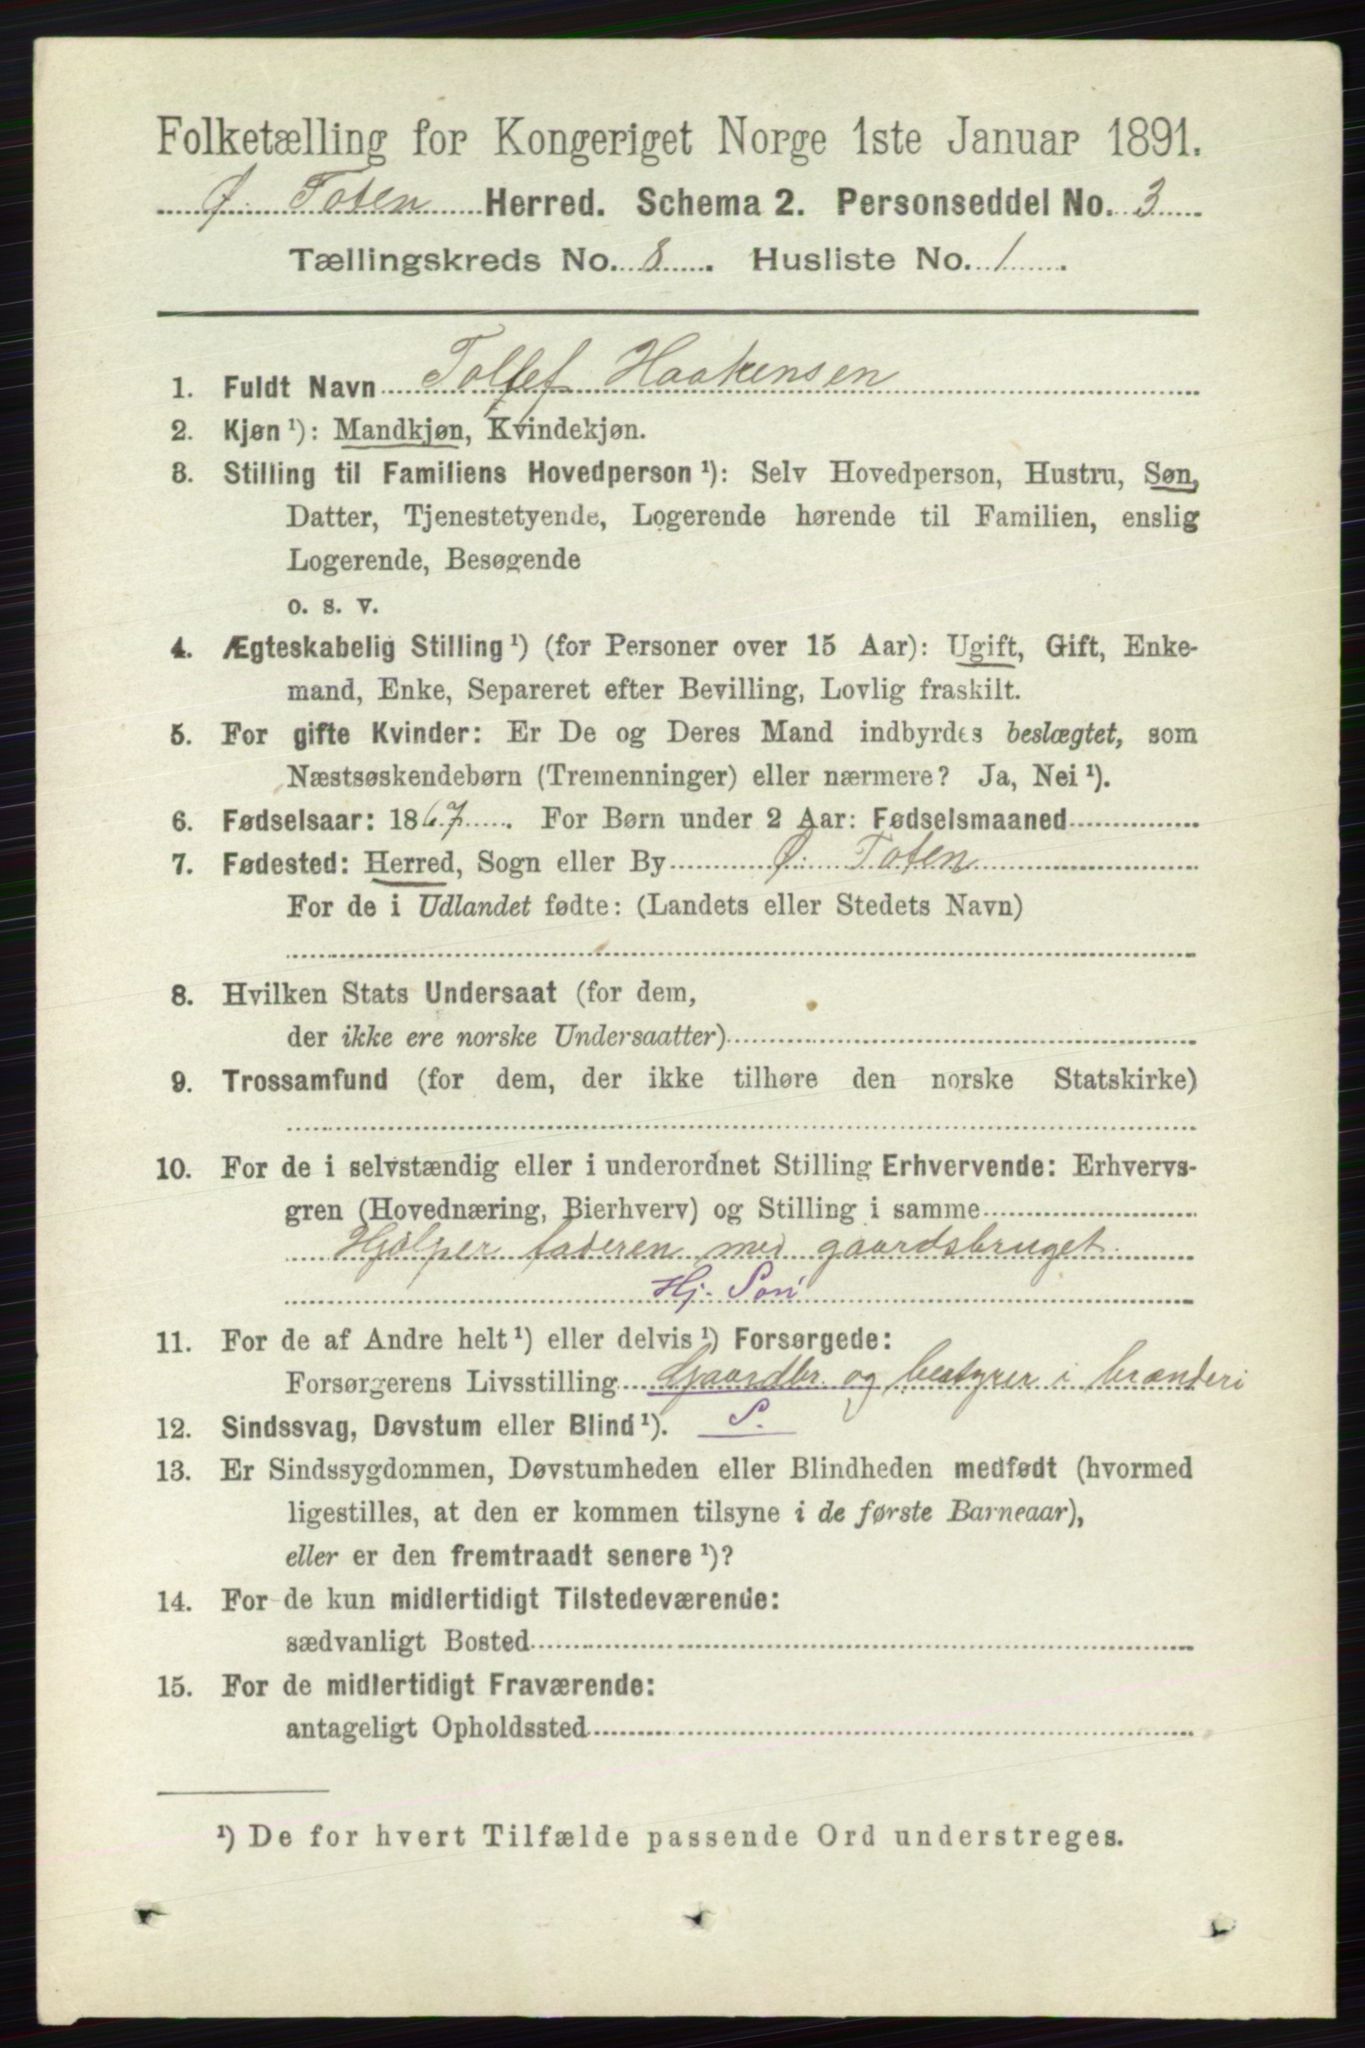 Folketælling for Kongeriget Norge 1ste Januar 1891.
Ø. Toten Herred. Schema 2. Personseddel No. 3
Tællingskreds No. 8. Husliste No. 1.
1. Fuldt Navn Tollef Haakensen
2. Kjøn ¹): Mandkjøn, Kvindekjøn.
3. Stilling til Familiens Hovedperson ¹): Selv Hovedperson, Hustru, Søn,
Datter, Tjenestetyende, Logerende hørende til Familien, enslig
Logerende, Besøgende
o. s. v.
4. Ægteskabelig Stilling ¹) (for Personer over 15 Aar): Ugift, Gift, Enke-
mand, Enke, Separeret efter Bevilling, Lovlig fraskilt.
5. For gifte Kvinder: Er De og Deres Mand indbyrdes beslægtet, som
Næstsøskendebørn (Tremenninger) eller nærmere? Ja, Nei ¹).
6. Fødselsaar: 1867. For Børn under 2 Aar: Fødselsmaaned
7. Fødested: Herred, Sogn eller By Ø. Toten
For de i Udlandet fødte: (Landets eller Stedets Navn)
8. Hvilken Stats Undersaat (for dem,
der ikke ere norske Undersaatter)
9. Trossamfund (for dem, der ikke tilhøre den norske Statskirke)
10. For de i selvstændig eller i underordnet Stilling Erhvervende: Erhvervs-
gren (Hovednæring, Bierhverv) og Stilling i samme
Hjælper faderen med gaardsbruget
Hj. Søn
11. For de af Andre helt ¹) eller delvis ¹) Forsørgede:
Forsørgerens Livsstilling Gaardbr. og bestyrer i brænderi
12. Sindssvag, Døvstum eller Blind ¹). S.
13. Er Sindssygdommen, Døvstumheden eller Blindheden medfødt (hvormed
ligestilles, at den er kommen tilsyne i de første Barneaar),
eller er den fremtraadt senere ¹)?
14. For de kun midlertidigt Tilstedeværende:
sædvanligt Bosted
15. For de midlertidigt Fraværende:
antageligt Opholdssted
¹) De for hvert Tilfælde passende Ord understreges.